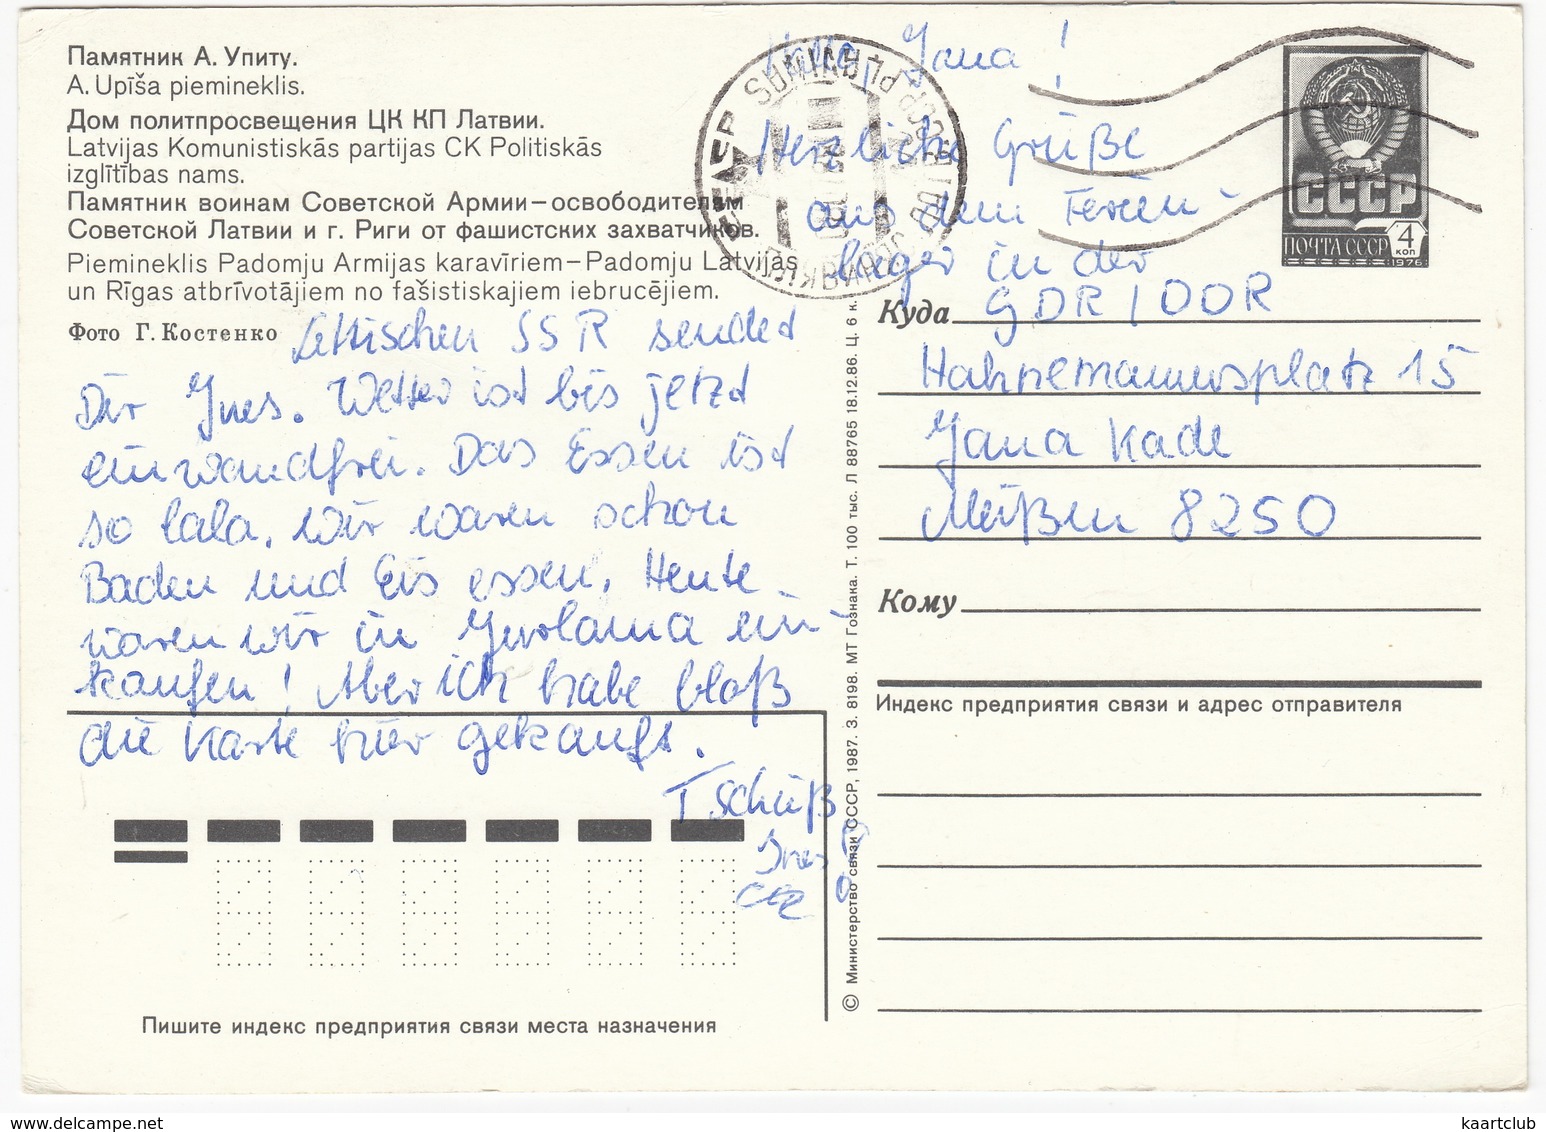 Памятник А. Упиту.
A. Upīša piemineklis.
Дом политпросвещения ЦК КП Латвии.
Latvijas Komunistiskās partijas CK Politiskās
izglītības nams.
Памятник воинам Советской Армии – освободителям
Советской Латвии и г. Риги от фашистских захватчиков.
Piemineklis Padomju Armijas karavīriem – Padomju Latvijas
un Rīgas atbrīvotājiem no fašistiskajiem iebrucējiem.
Фото Г. Костенко
Hallo, Jana!
Herzliche Grüße
aus dem Ferien-
lager in der
Lettischen SSR sendet
Dir Ines. Wetter ist bis jetzt
einwandfrei. Das Essen ist
so lala. Wir waren schon
Baden und Eis essen. Heute
waren wir in ein-
kaufen! Aber ich habe bloß
die Karte hier gekauft.
Tschüß
Ines
СССР
ПОЧТА СССР
4
коп
1976
PĻAVIŅAS
Куда GDR / DDR
Hahnemannsplatz 15
Jana Kade
Meißen 8250
Кому
Индекс предприятия связи и адрес отправителя
© Министерство связи СССР, 1987. З. 8198. МТ Гознака. Т. 100 тыс. Л 88765 18.12.86. Ц. 6 к.
Пишите индекс предприятия связи места назначения
kaartclub
www.delcampe.net